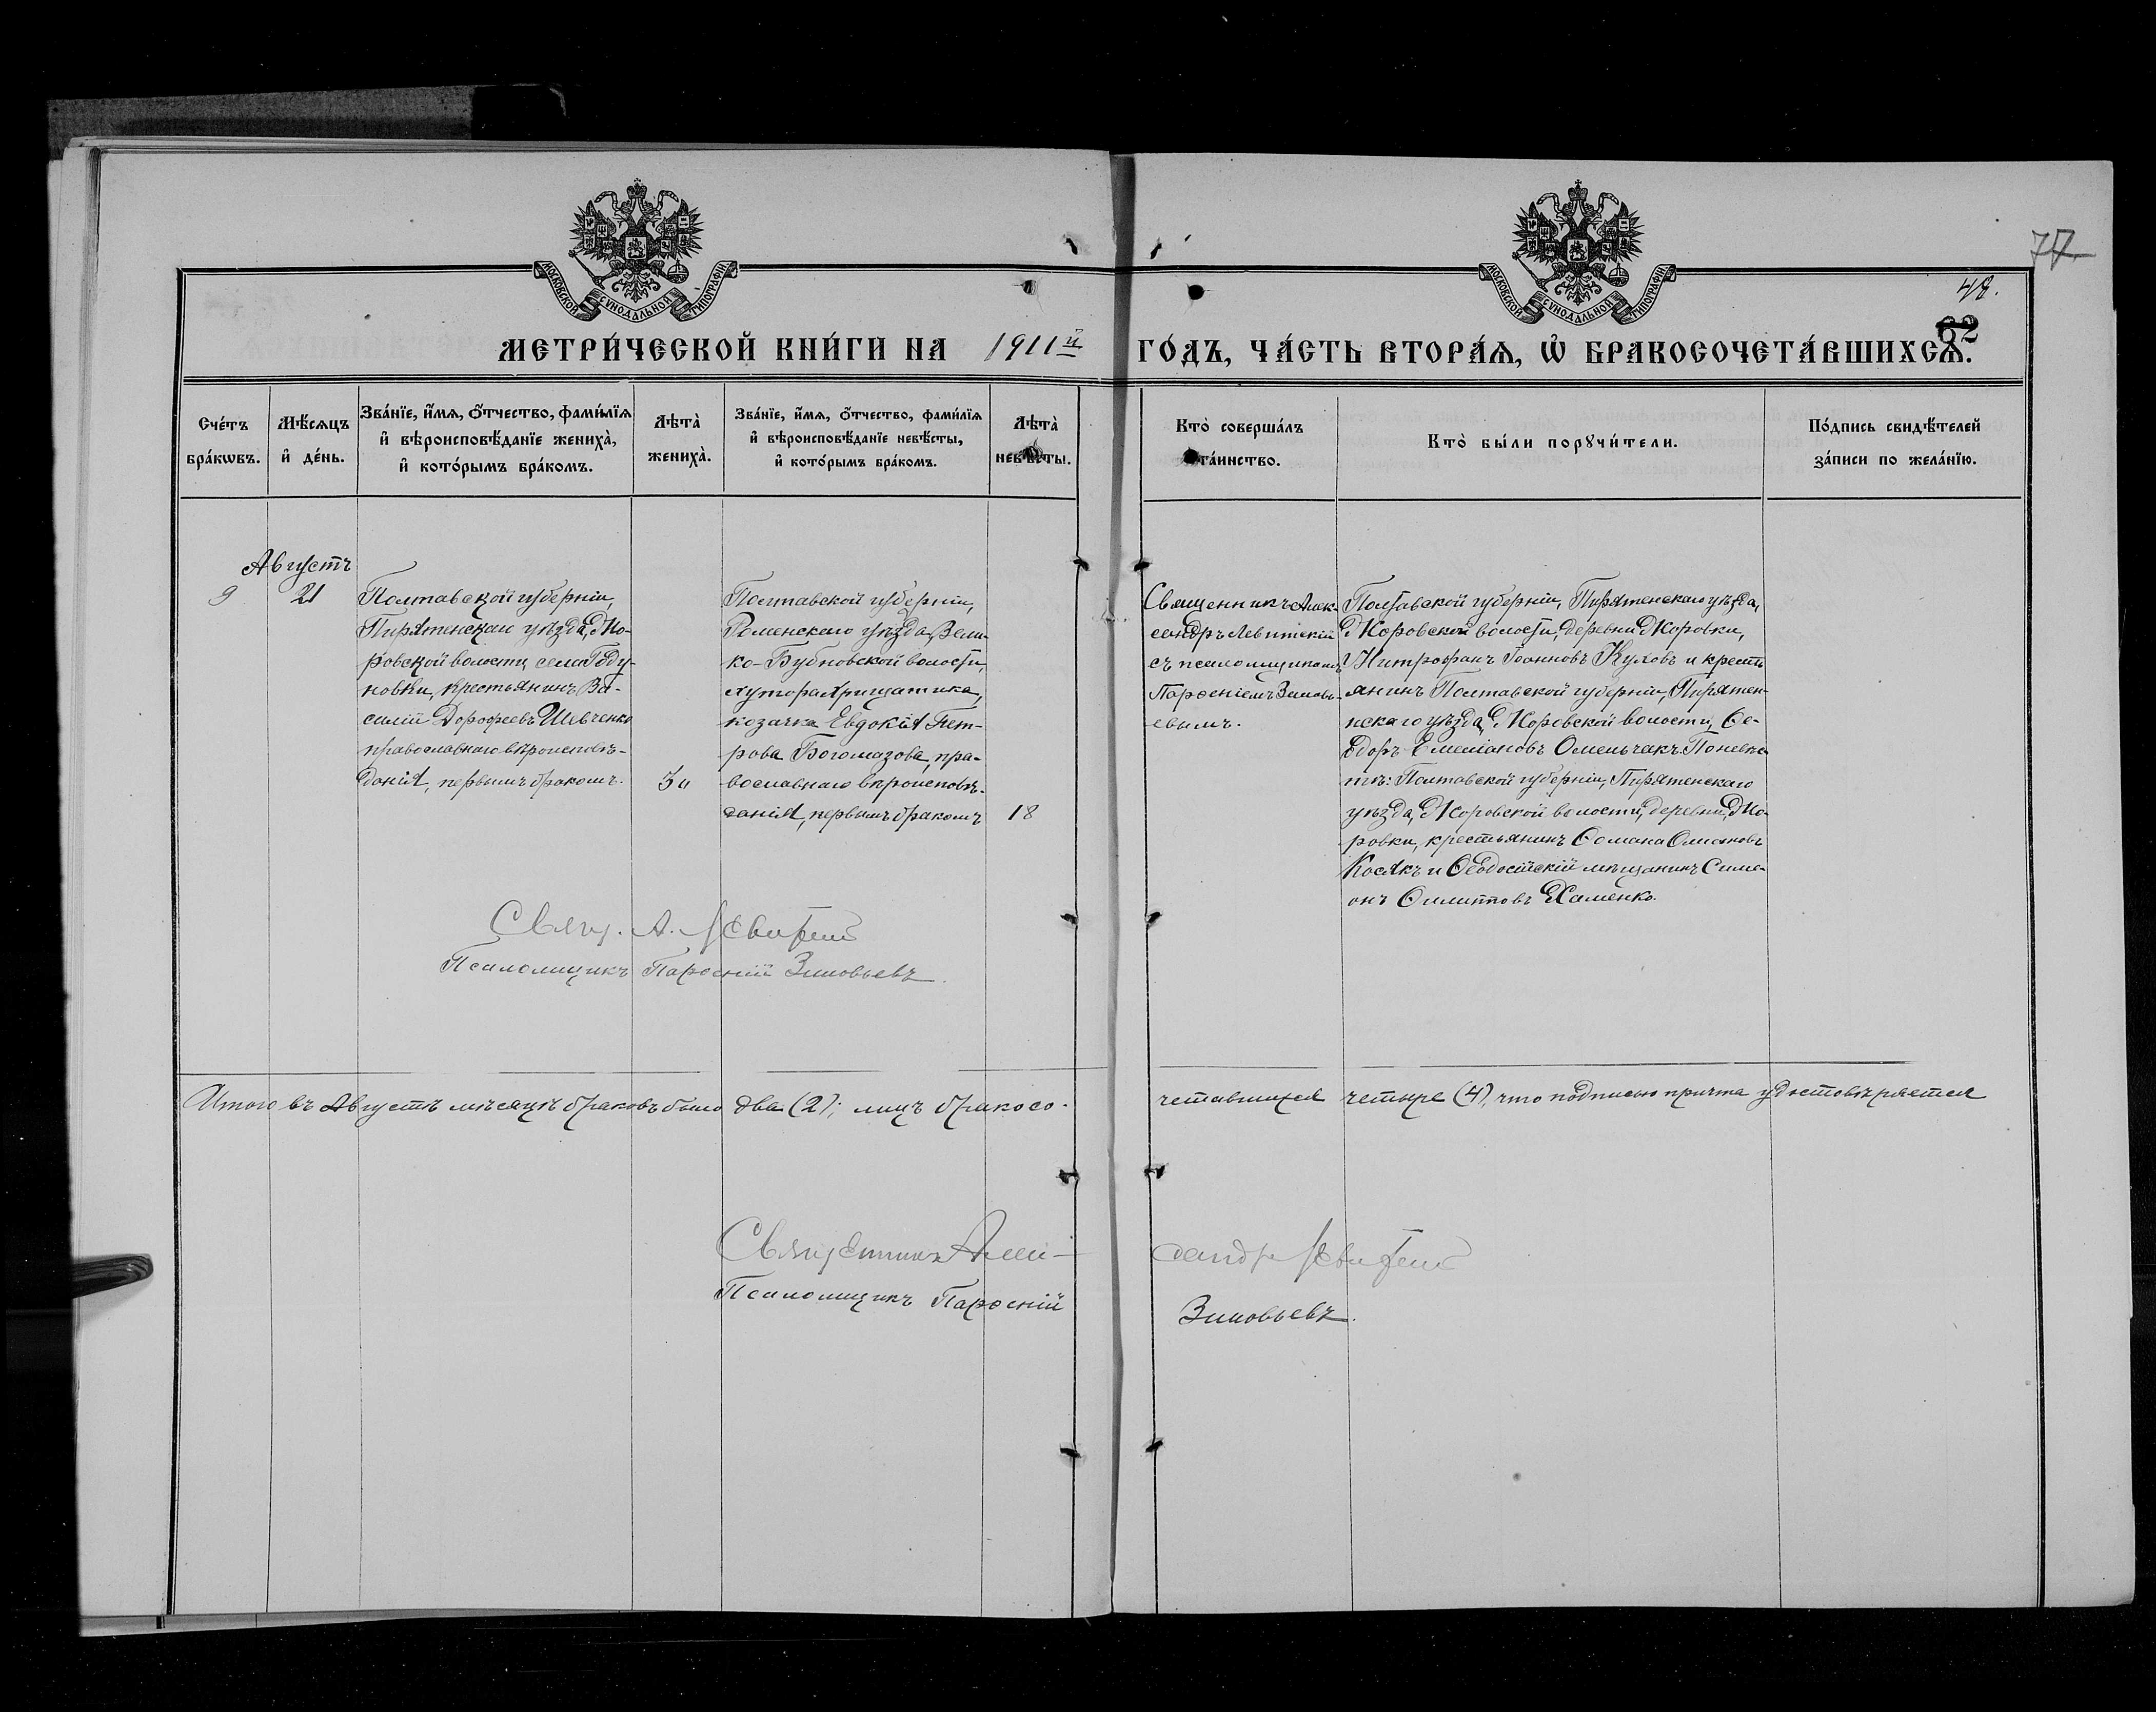 МОСКОВСКОЙ СѴНОДАЛЬНОЙ ТИПОГРАФІИ
МОСКОВСКОЙ СѴНОДАЛЬНОЙ ТИПОГРАФІИ
77
48.
62
МЕТРИ́ЧЕСКОЙ КНИ́ГИ НА 1911й ГО́ДЪ, ЧА́СТЬ ВТОРА́Я, Ѡ҆ БРАКОСОЧЕТА́ВШИХСЯ.
Сче́тъ бра́кѡвъ.
Мѣ́сяцъ и҆ де́нь.
Зва́нїе, и҆́мя, ѻ҆́тчество, фами́лїя
и҆ вѣроисповѣ́данїе жениха̀,
и҆ кото́рымъ бра́комъ.
Лѣта̀ жениха̀.
Зва́нїе, и҆́мя, ѻ҆́тчество, фами́лїя
и҆ вѣроисповѣ́данїе невѣ́сты,
и҆ кото́рымъ бра́комъ.
Лѣта̀ невѣ́сты.
Кто̀ соверша́лъ
та́инство.
Кто̀ бы́ли порꙋчи́тели.
По́дпись свидѣ́телей
за́писи по жела́нїю.
Августъ
9 21
Полтавской губерніи,
Пирятенскаго уѣзда, Мо-
ровской волости, села Году-
новки, крестьянинъ Ва-
силій Дорофеевъ Шевченко
православнаго вѣроисповѣ-
данія, первымъ бракомъ.
Полтавской губерніи,
Роменскаго уѣзда, Вели-
ко-Бубновской волости,
хутора
козачка Евдокія Пет-
рова Богомазова, пра-
вославнаго вѣроисповѣ-
данія, первымъ бракомъ
18
Священникъ Алек-
сандръ Левитскій
съ псаломщикомъ
Парѳеніемъ Зиновь-
евымъ.
Полтавской губерніи, Пирятенскаго уѣзда,
Моровской волости, деревни Моровки,
Митрофанъ Іоанновъ и кресть
янинъ Полтавской губерніи, Пирятен-
нскаго уѣзда, Моровской волости, Ѳе-
одоръ Емеліановъ Омельчакъ. По невѣс-
тѣ: Полтавской губерніи, Пирятенскаго
уѣзда, Моровской волости, деревни, Мо-
ровки, крестьянинъ
Косякъ и Ѳеодосійскій мѣщанинъ Симе-
онъ Филипповъ Хаменко.
Свящ. А. Левитскій
Псаломщикъ Парѳеній Зиновьевъ.
Итого въ Августѣ мѣсяцѣ браковъ было два (2); лицъ бракосо-
четавшихся четыре (4), что подписью причта удостовѣряется
Священникъ Алек-
сандръ Левитскій
Псаломщикъ Парѳеній
Зиновьевъ.